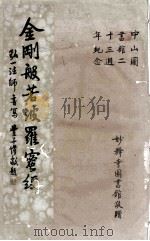 中山圖
書館二
十三週
年紀念
金剛般若波羅蜜經
弘法師書寫 豐子愷敬題
妙釋寺圖書館敬贈